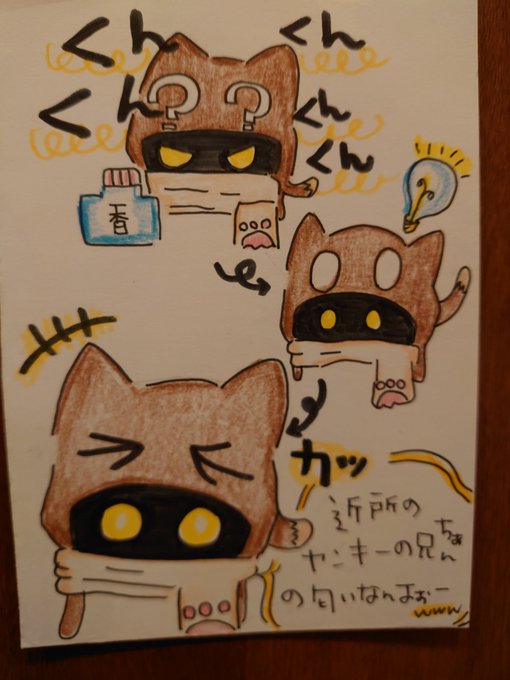 くん
くん
くん
くん
くん
??
香
カッ
近所の
ヤンキーの兄ちゃん
の匂いなんよぉー
www